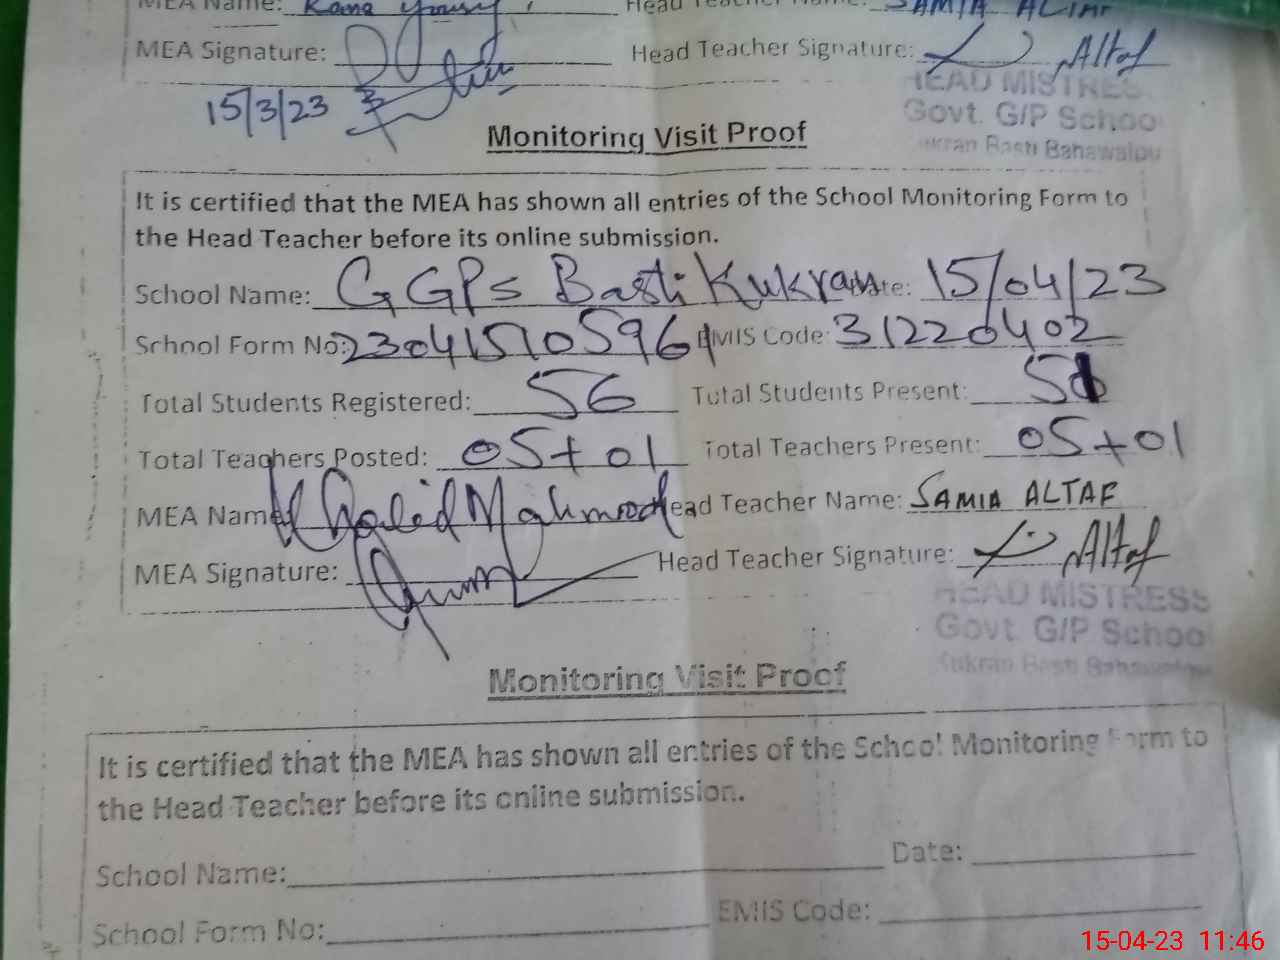 MEA Name: Rana
Head Teacher Name: SAMIA ALTAF
MEA Signature:
Head Teacher Signature: Altaf
15/3/23
HEAD MISTRESS
Govt. G/P School
Kukran Basti Bahawalpu
Monitoring Visit Proof
It is certified that the MEA has shown all entries of the School Monitoring Form to
the Head Teacher before its online submission.
School Name: GGPS Basti Kukran Date: 15/04/23
School Form No: EMIS Code: 31220402
Total Students Registered: 56 Total Students Present:
Total Teachers Posted: 05+01 Total Teachers Present: 05+01
MEA Name: Khalid Mahmood Head Teacher Name: SAMIA ALTAF
MEA Signature: Head Teacher Signature: Altaf
HEAD MISTRESS
Govt. G/P School
Kukran Basti Bahawalpu
Monitoring Visit Proof
It is certified that the MEA has shown all entries of the School Monitoring Form to
the Head Teacher before its online submission.
School Name: Date:
School Form No: EMIS Code:
15-04-23 11:46